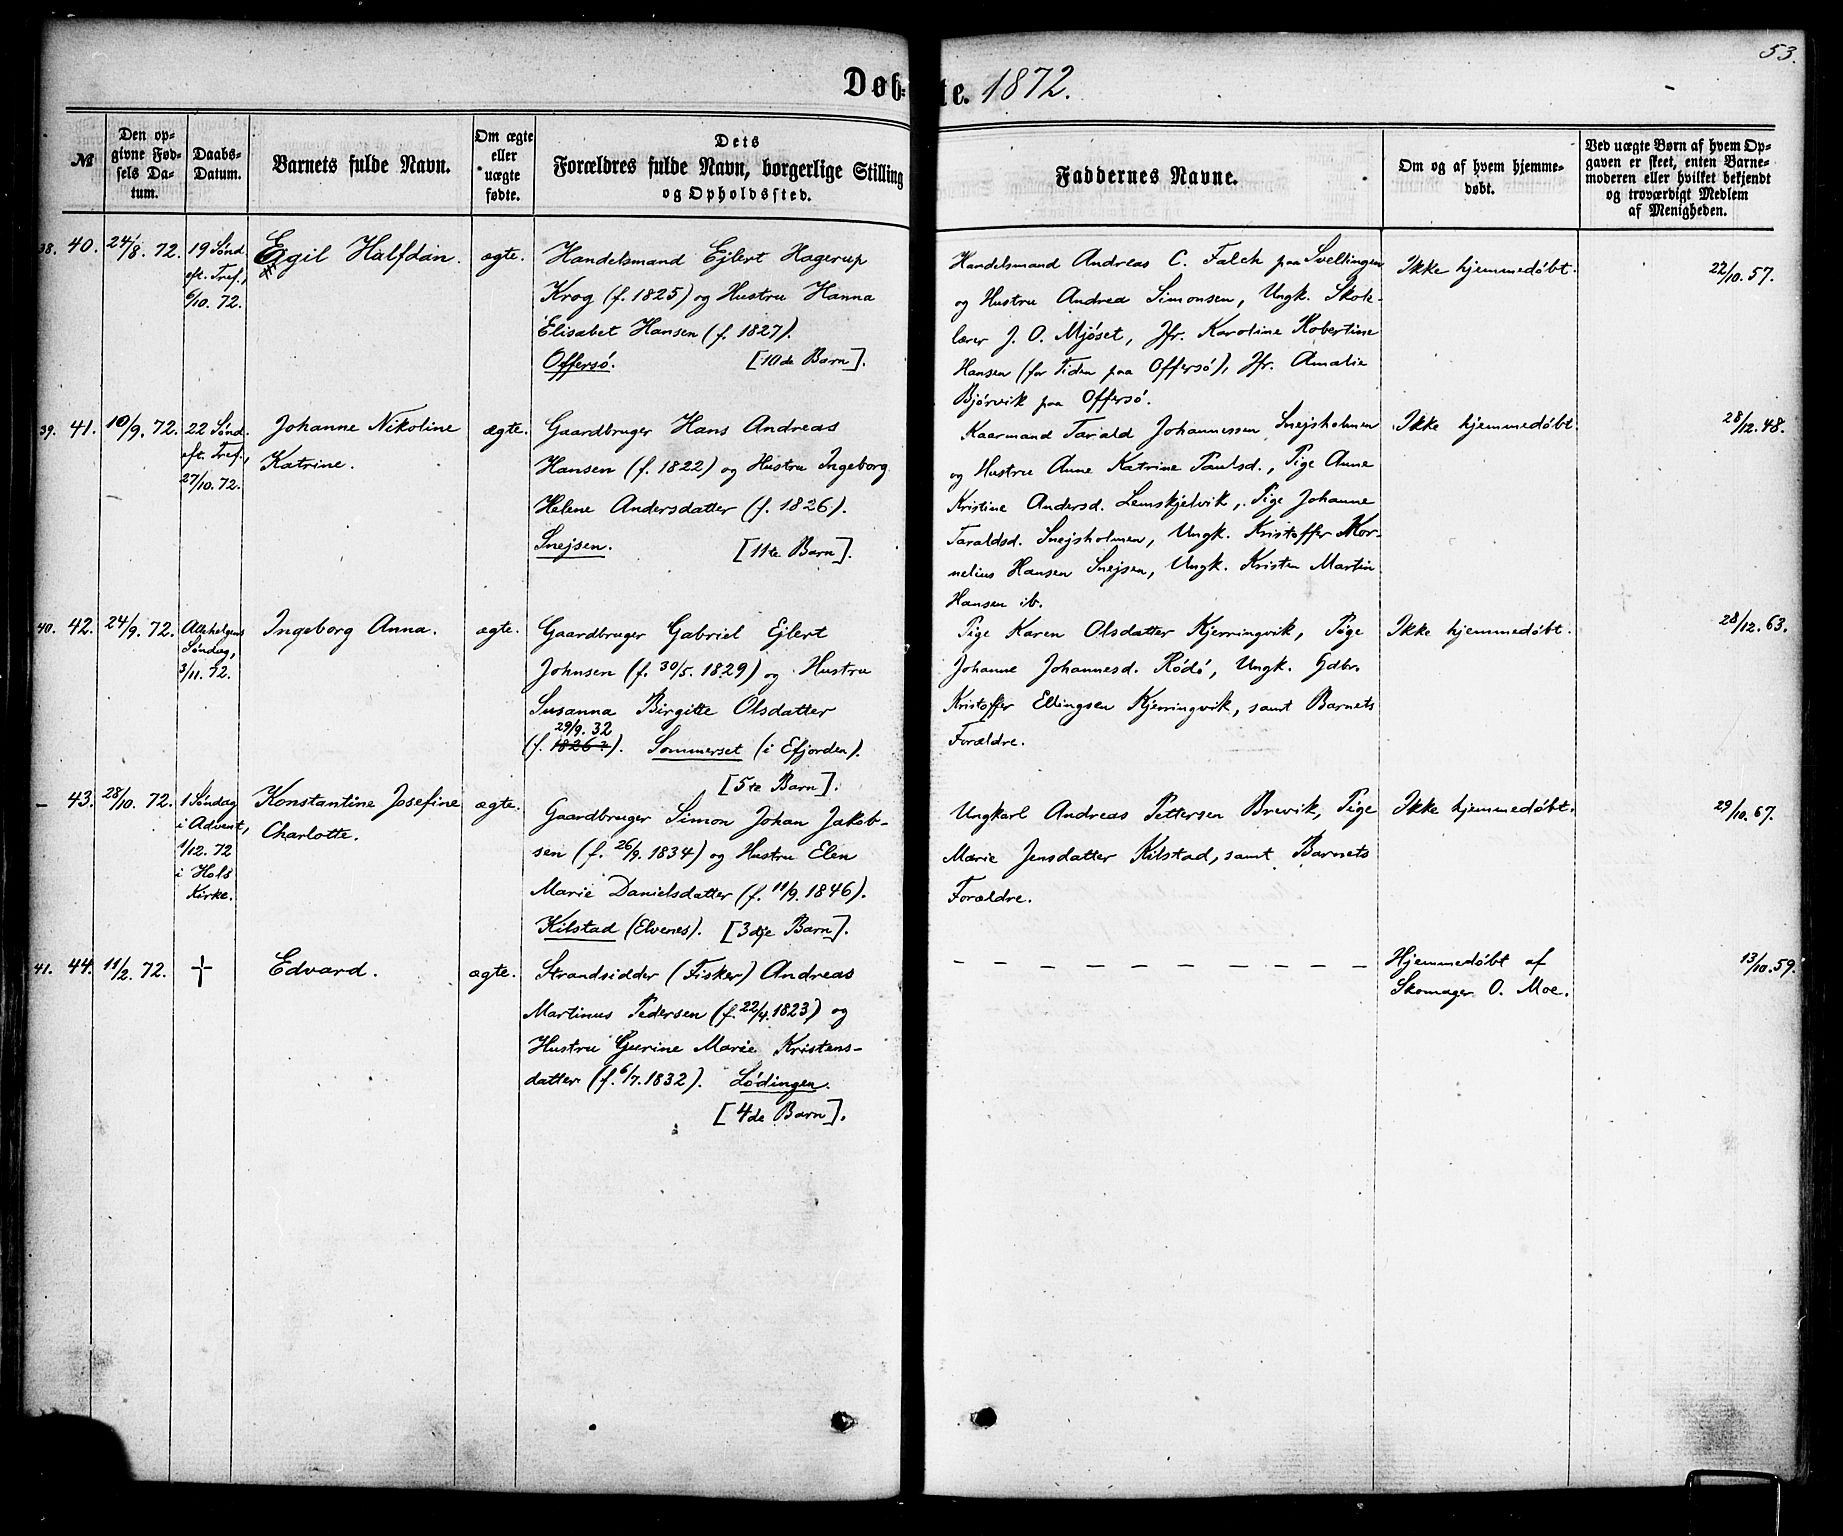 53.
Døbte. 1872.
№
Den opgivne Fødsels Datum.
Daabs-Datum.
Barnets fulde Navn.
Om ægte eller uægte fødte.
Dets Forældres fulde Navn, borgerlige Stilling og Opholdssted.
Faddernes Navne.
Om og af hvem hjemmedøbt.
Ved uægte Børn af hvem Opgaven er skeet, enten Barnemoderen eller hvilket bekjendt og troværdigt Medlem af Menigheden.
38. 40. 24/8. 72.
19 Sønd.
eft. Tref.,
6/10. 72.
Egil Halfdan.
ægte.
Handelsmand Ejlert Hagerup
Krog (f. 1825) og Hustru Hanna
Elisabet Hansen (f. 1827).
Offersø. [10de Barn].
Handelsmand Andreas C. Falch paa Svellingen
og Hustru Andrea Simonsen, Ungk. Skole-
lærer J. O. Mjøset, Jfr. Karoline Robertine
Hansen (for Tiden paa Offersø), Jfr. Amalie
Bjørvik paa Offersø.
Ikke hjemmedøbt.
22/10. 57.
39. 41. 10/9. 72.
22 Sønd.
eft. Tref.,
27/10. 72.
Johanne Nikoline
Katrine.
ægte.
Gaardbruger Hans Andreas
Hansen (f. 1822) og Hustru Ingeborg
Helene Andersdatter (f. 1826).
Snejsen. [11te Barn].
Kaarmand Tarald Johannessen Snejsholmen
og Hustru Anne Katrine Paulsd., Pige Anne
Kristine Andersd. Lemskjelvik, Pige Johanne
Taraldsd. Snejsholmen, Ungk. Kristoffer Kor-
nelius Hansen Snejsen, Ungk. Kristen Martin
Hansen ib.
Ikke hjemmedøbt.
28/12. 48.
40. 42. 24/9. 72.
Allehelgens
Søndag,
3/11. 72.
Ingeborg Anna.
ægte.
Gaardbruger Gabriel Ejlert
Johnsen (f. 30/5. 1829) og Hustru
Susanna Birgitte Olsdatter
29/9. 32
(f. 1826?). Sommerset (i Efjorden).
[5te Barn].
Pige Karen Olsdatter Kjerringvik, Pige
Johanne Johannesd. Rødø, Ungk. Gdbr.
Kristoffer Ellingsen Kjerringvik, samt Barnets
Forældre.
Ikke hjemmedøbt.
28/12. 63.
– 43. 28/10. 72.
1 Søndag
i Advent,
1/12. 72
i Hols
Kirke.
Konstantine Josefine
Charlotte.
ægte.
Gaardbruger Simon Johan Jakob-
sen (f. 26/9. 1834) og Hustru Elen
Marie Danielsdatter (f. 11/9. 1846).
Kilstad (Elvenes). [3dje Barn].
Ungkarl Andreas Pettersen Brevik, Pige
Marie Jensdatter Kilstad, samt Barnets
Forældre.
Ikke hjemmedøbt.
29/10. 67.
41. 44. 11/2. 72.
†
Edvard.
ægte.
Strandsidder (Fisker) Andreas
Martinus Pedersen (f. 22/4. 1823) og
Hustru Gurine Marie Kristens-
datter (f. 6/7. 1832). Lødingen.
[4de Barn].
– – – – – – – – – – –
Hjemmedøbt af
Skomager O. Moe.
13/10. 59.